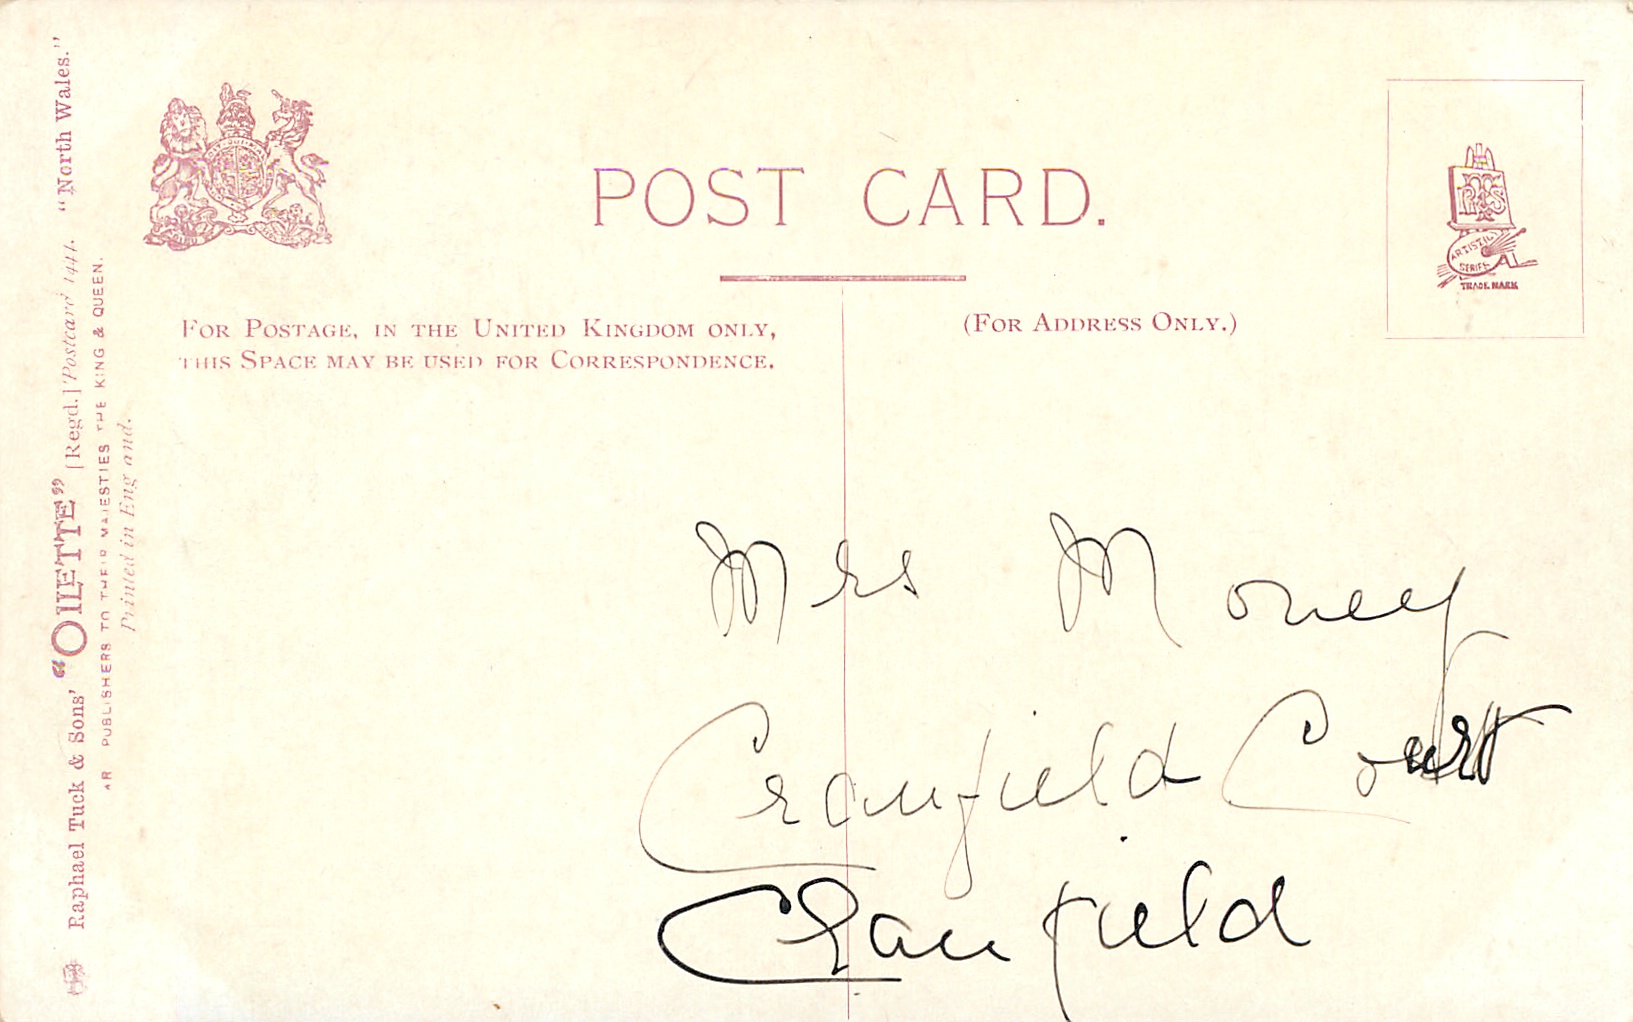 POST CARD.
FOR POSTAGE, IN THE UNITED KINGDOM ONLY,
THIS SPACE MAY BE USED FOR CORRESPONDENCE.
(FOR ADDRESS ONLY.)
ARTISTIC
SERIES
TRADE MARK
Mrs Money
Cranfield Court
Cranfield
Raphael Tuck & Sons' "OILETTE" [Regd.] Postcard 1441. "North Wales."
PUBLISHERS TO THEIR MAJESTIES THE KING & QUEEN.
Printed in England.